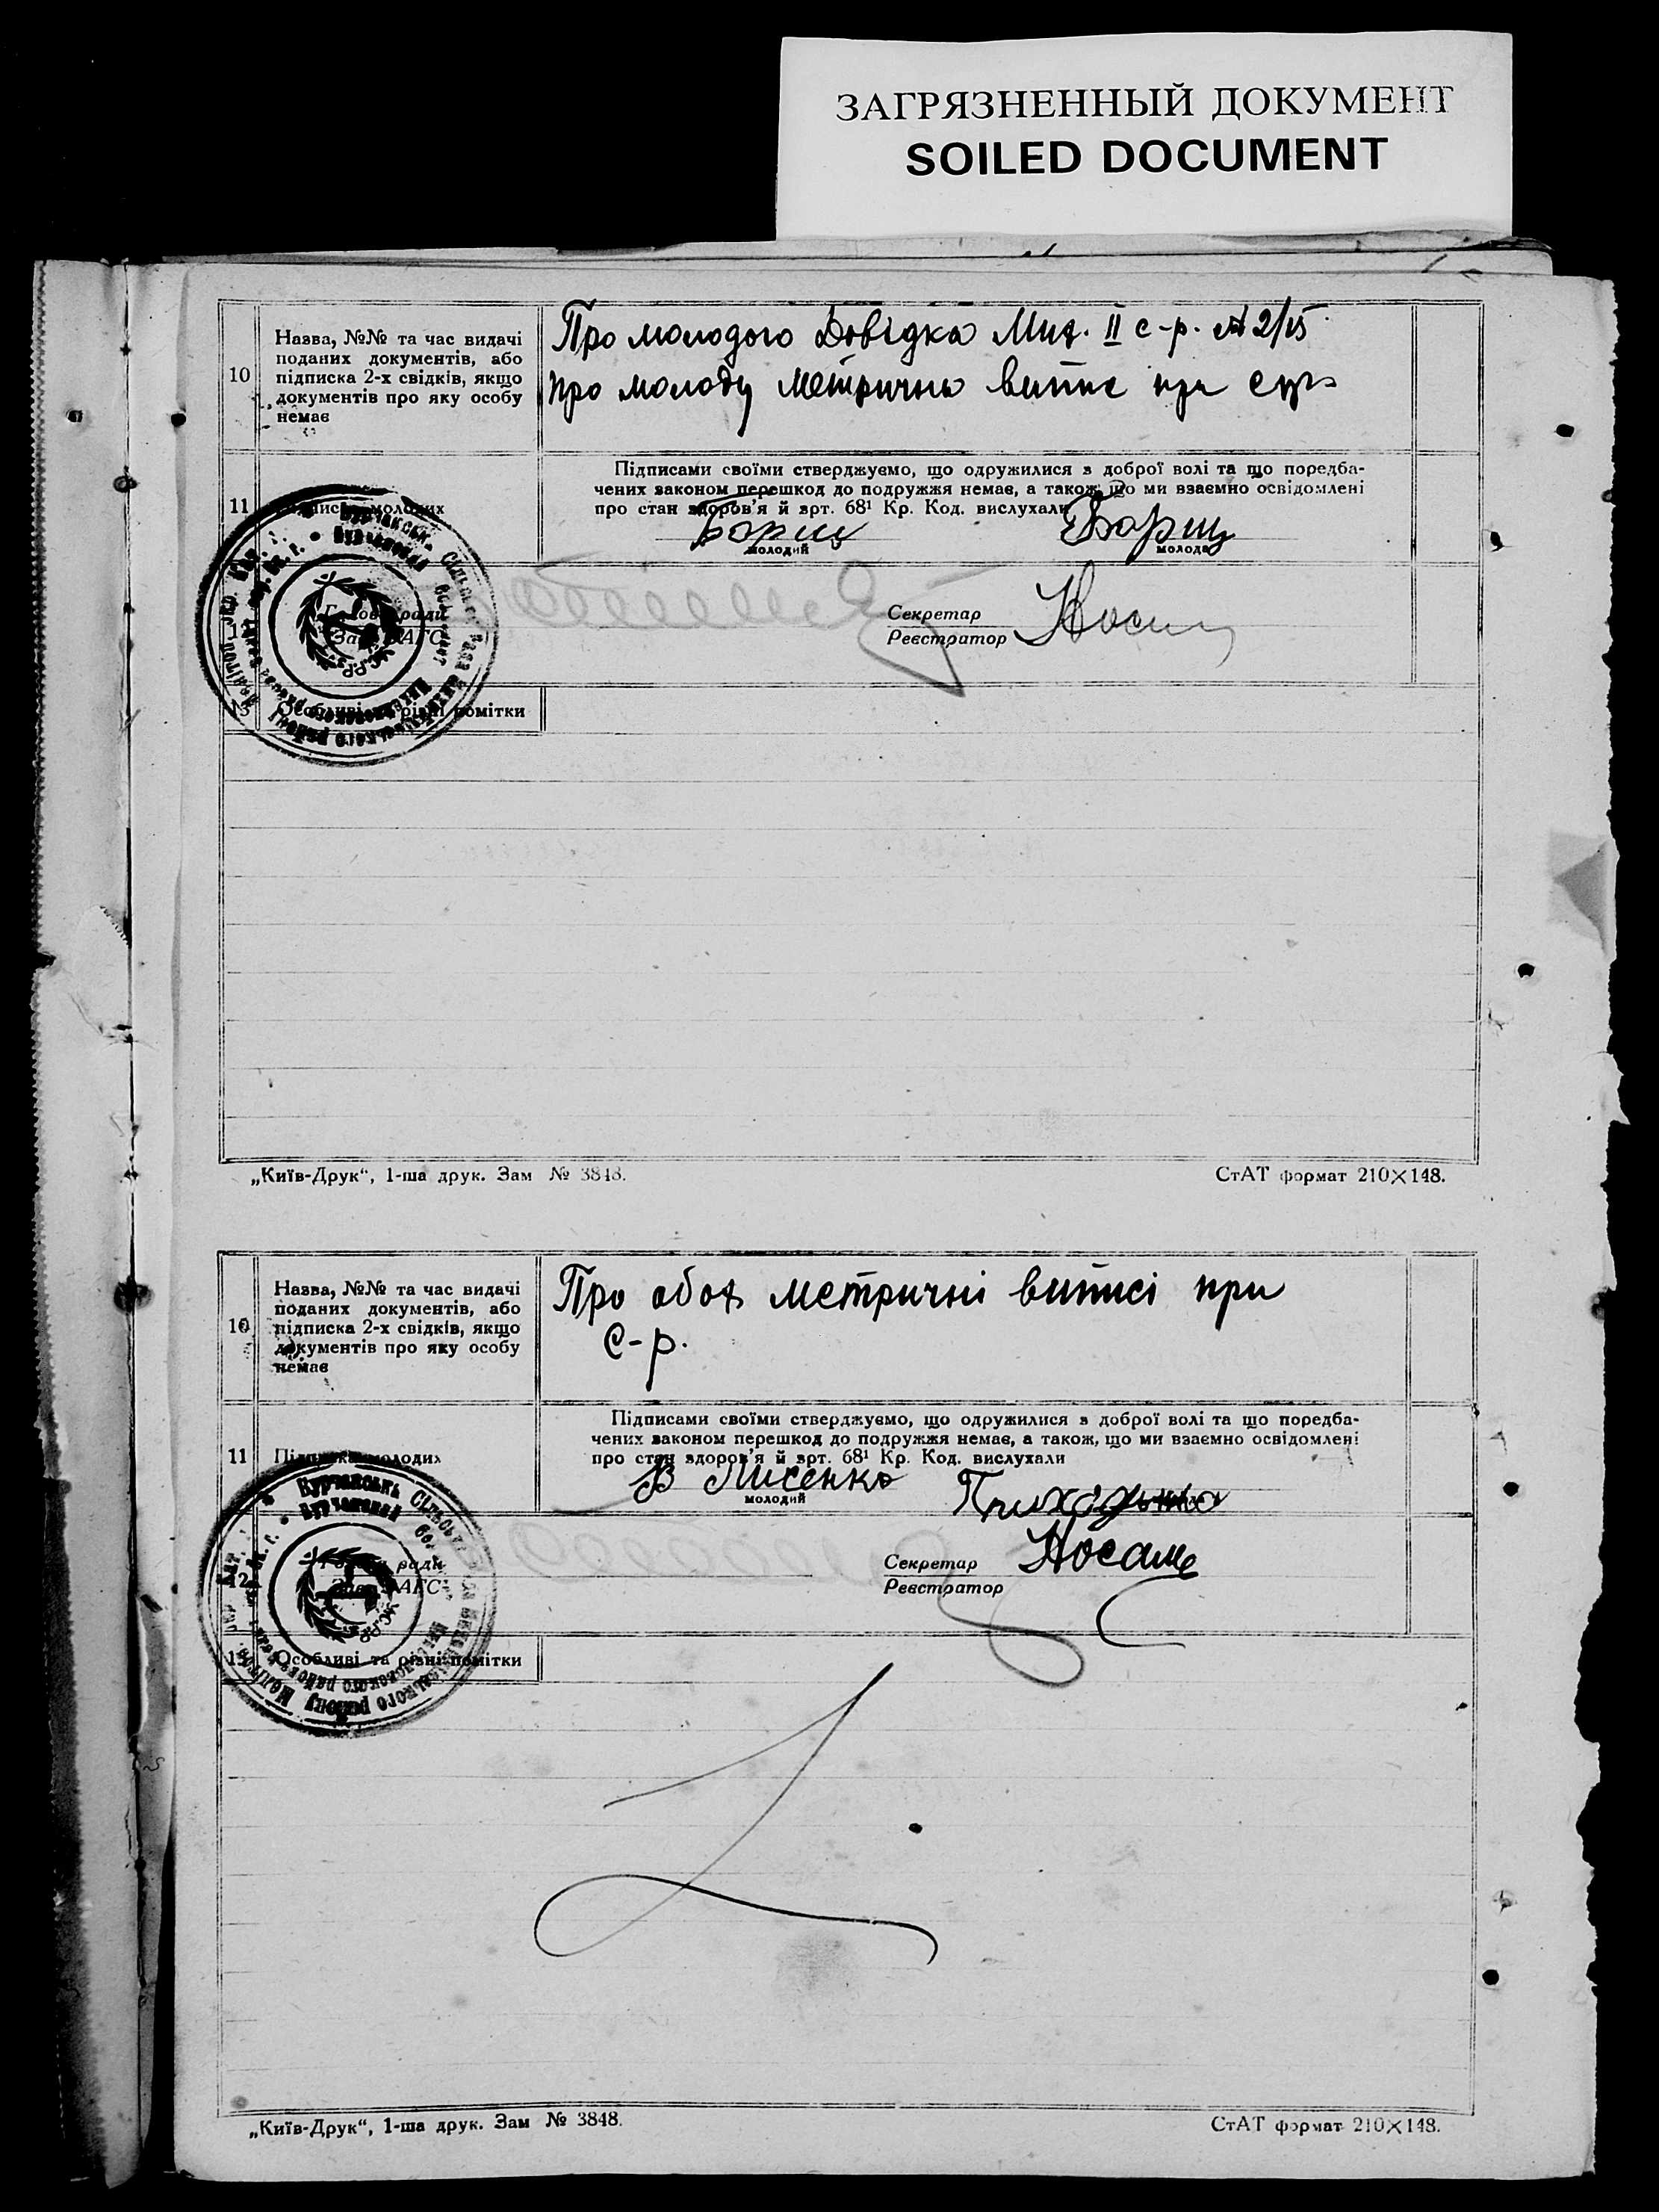 ЗАГРЯЗНЕННЫЙ ДОКУМЕНТ
SOILED DOCUMENT
10
Назва, №№ та час видачі
поданих документів, або
підписка 2-х свідків, якщо
документів про яку особу
немає
Про молодого Довідка Мих. II с-р. № 2/15
Про молоду метрична випис при
11
молодих
Підписами своїми стверджуємо, що одружилися з доброї волі та що поредба-
чених законом перешкод до подружжя немає, а також, що ми взаємно освідомлені
про стан здоров'я й арт. 68¹ Кр. Код. вислухали
Борщ
Борщ
молодий
молода
12
Голова ради
Зав. ЗАГС
Секретар
Реєстратор
13
Особливі та різні помітки
„Київ-Друк“, 1-ша друк. Зам № 3848.
СтАТ формат 210×148.
10
Назва, №№ та час видачі
поданих документів, або
підписка 2-х свідків, якщо
документів про яку особу
немає
Про обох метричні виписі при
с-р.
11
Підписка молодих
Підписами своїми стверджуємо, що одружилися з доброї волі та що поредба-
чених законом перешкод до подружжя немає, а також, що ми взаємно освідомлені
про стан здоров'я й арт. 68¹ Кр. Код. вислухали
В Лисенко
Приходько
молодий
12
Голова ради
Зав. ЗАГС
Секретар
Реєстратор
13
Особливі та різні помітки
„Київ-Друк“, 1-ша друк. Зам № 3848.
СтАТ формат 210×148.